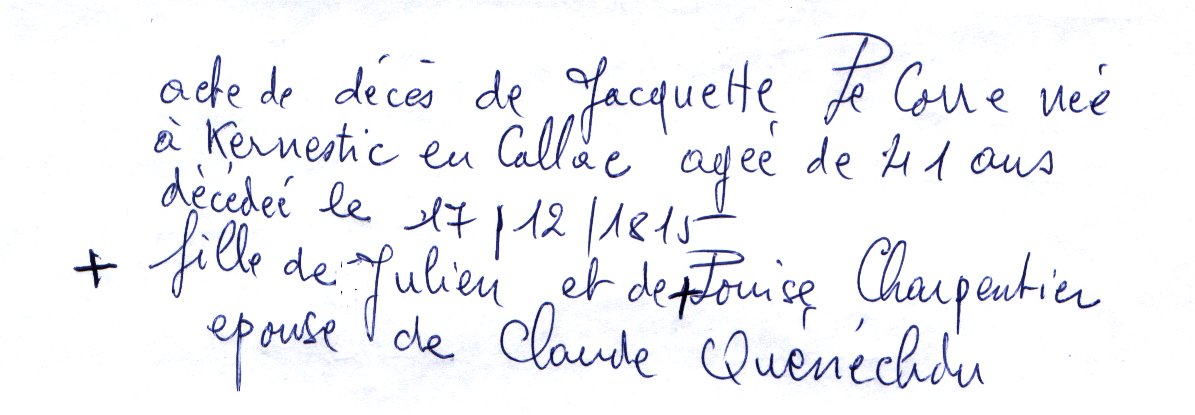 acte de décès de Jacquette Le Corre née
à Kernestic en Callac agée de 41 ans
décédée le 17/12/1815
+ fille de Julien et de + Louise Charpentier
epouse de Claude Quénéchdu